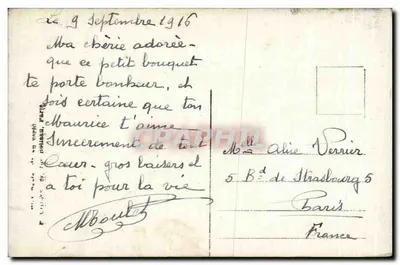 Le 9 Septembre 1916
Ma chèrie adorée-
que ce petit bouquet
te porte bonheur, et
sois certaine que ton
Maurice t'aime
Sincerement de tout
Cœur - gros baisers et
a toi pour la vie
MBoulet
Mlle Alice Verrier
5 Bd de Strasbourg 5
Paris
France